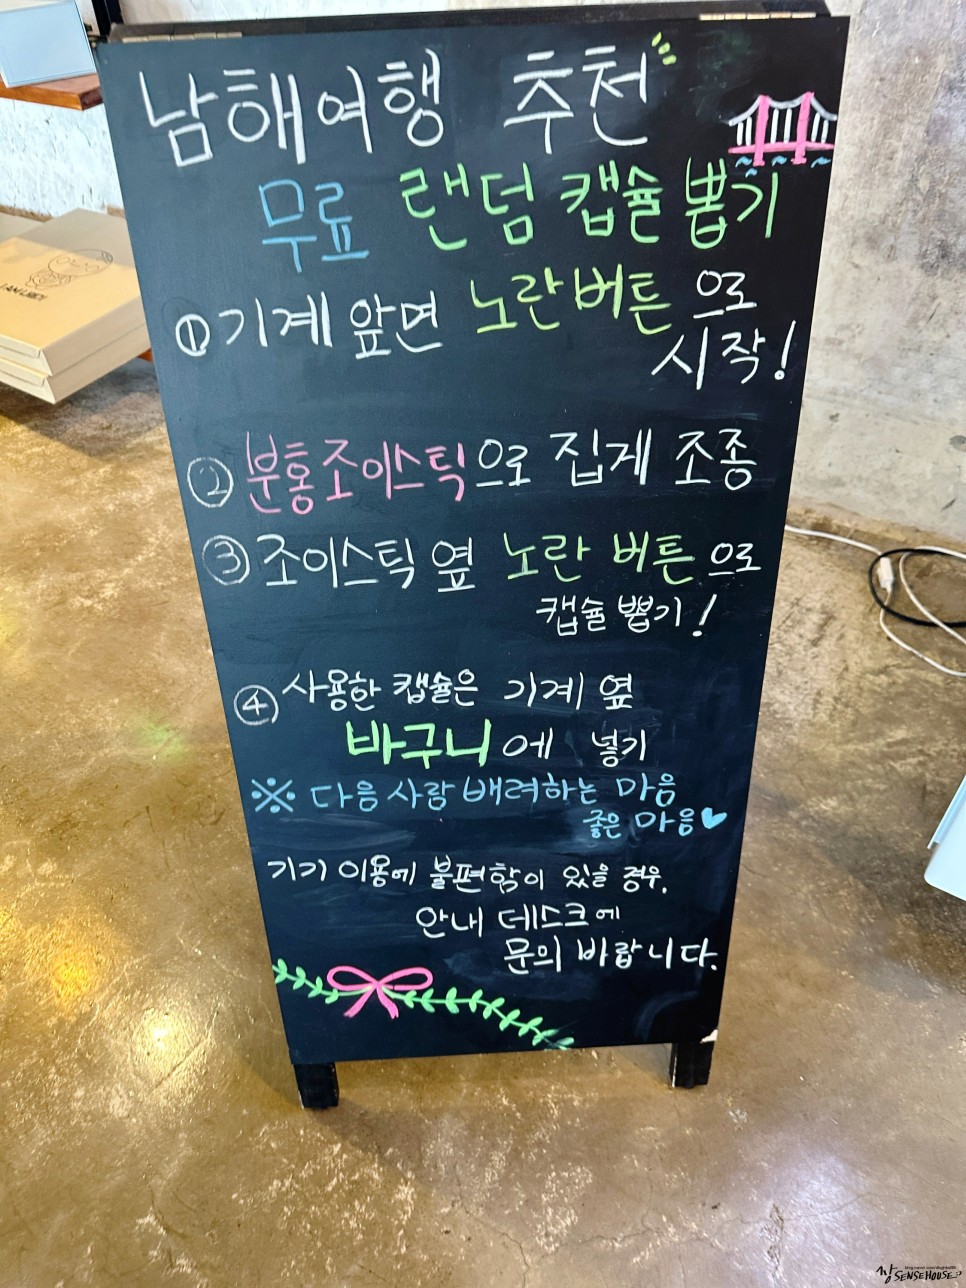 남해여행 추천
무료 랜덤 캡슐 뽑기
① 기계 앞면 노란버튼으로
시작!
② 분홍조이스틱으로 집게 조종
③ 조이스틱 옆 노란 버튼으로
캡슐 뽑기!
④ 사용한 캡슐은 기계 옆
바구니에 넣기
※ 다음 사람 배려하는 마음
좋은 마음♥
기기 이용에 불편함이 있을 경우,
안내 데스크에
문의 바랍니다.
SENSEHOUSE